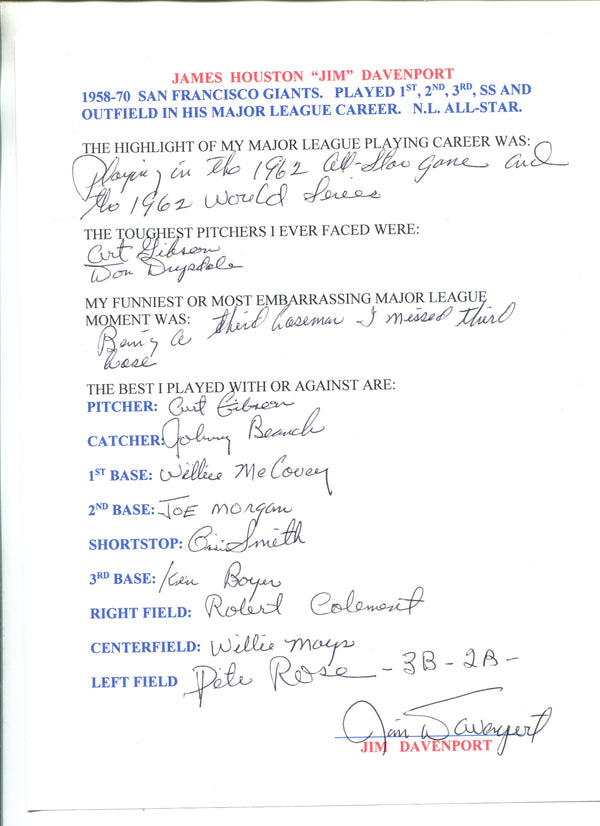 JAMES HOUSTON “JIM” DAVENPORT
1958-70 SAN FRANCISCO GIANTS. PLAYED 1ST, 2ND, 3RD, SS AND
OUTFIELD IN HIS MAJOR LEAGUE CAREER. N.L. ALL-STAR.
THE HIGHLIGHT OF MY MAJOR LEAGUE PLAYING CAREER WAS:
Playing in the 1962 All-Star game and
the 1962 World Series
THE TOUGHEST PITCHERS I EVER FACED WERE:
Curt Gibson
Don Drysdale
MY FUNNIEST OR MOST EMBARRASSING MAJOR LEAGUE
MOMENT WAS: third baseman I missed third
Being a
base
THE BEST I PLAYED WITH OR AGAINST ARE:
PITCHER: Curt Gibson
CATCHER: Johnny Beanch
1ST BASE: Willie McCovey
2ND BASE: JOE MORGAN
SHORTSTOP: Ozzie Smith
3RD BASE: Ken Boyer
RIGHT FIELD: Robert Colement
CENTERFIELD: Willie Mays
LEFT FIELD Pete Rose - 3B - 2B -
Jim Davenport
JIM DAVENPORT